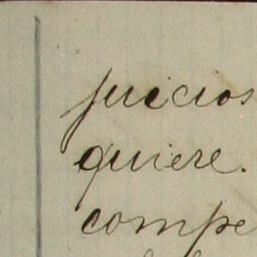 juicios
quiere.
compe